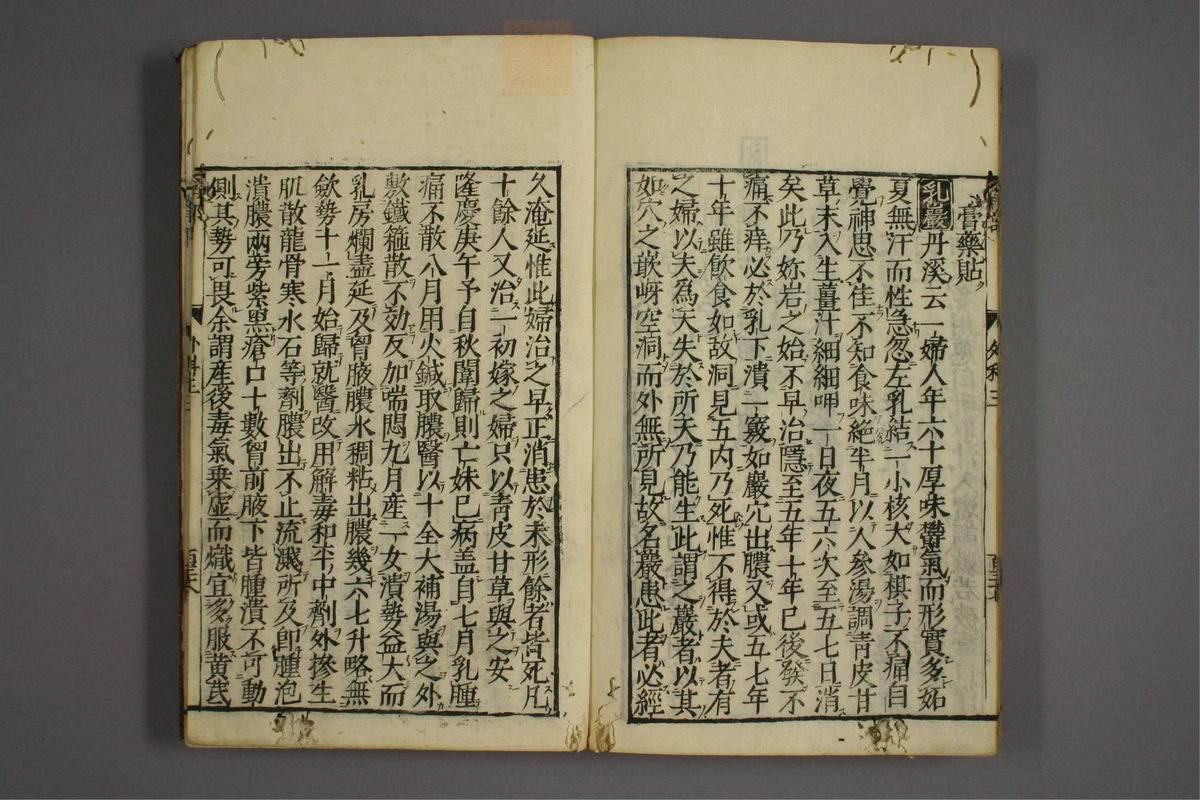 膏藥貼
乳巖丹溪云一婦人年六十厚味鬱氣而形實多妬
夏無汗而性急忽左乳結一小核大如棋子不痛自
覺神思不佳不知食味絶半月以人參湯調青皮甘
草末入生薑汁細細呷一日夜五六次至五七日消
矣此乃妳岩之始不早治隱至五年十年已後發不
痛不痒必於乳下潰一竅如巖穴出膿又或五七年
十年雖飲食如故洞見五内乃死惟不得於夫者有
之婦以夫為天失於所天乃能生此謂之巖者以其
如穴之嵌岈空洞而外無所見故名巖患此者必經
久淹延惟此婦治之早正消患於未形餘者皆死凡
十餘人又治一初嫁之婦只以青皮甘草與之安
隆慶庚午予自秋闈歸則亡妹已病盖自七月乳腫
痛不散八月用火鍼取膿醫以十全大補湯與之外
敷鐵箍散不効反加喘悶九月產一女潰勢益大而
乳房爛盡延及胷腋膿水稠粘出膿幾六七升略無
斂勢十一月始歸就醫改用解毒和平中劑外摻生
肌散龍骨寒水石等劑膿出不止流濺所及卽腫泡
潰膿兩旁紫黒瘡口十數胷前腋下皆腫潰不可動
側其勢可畏余謂産後毒氣乗虚而熾宜多服黄芪